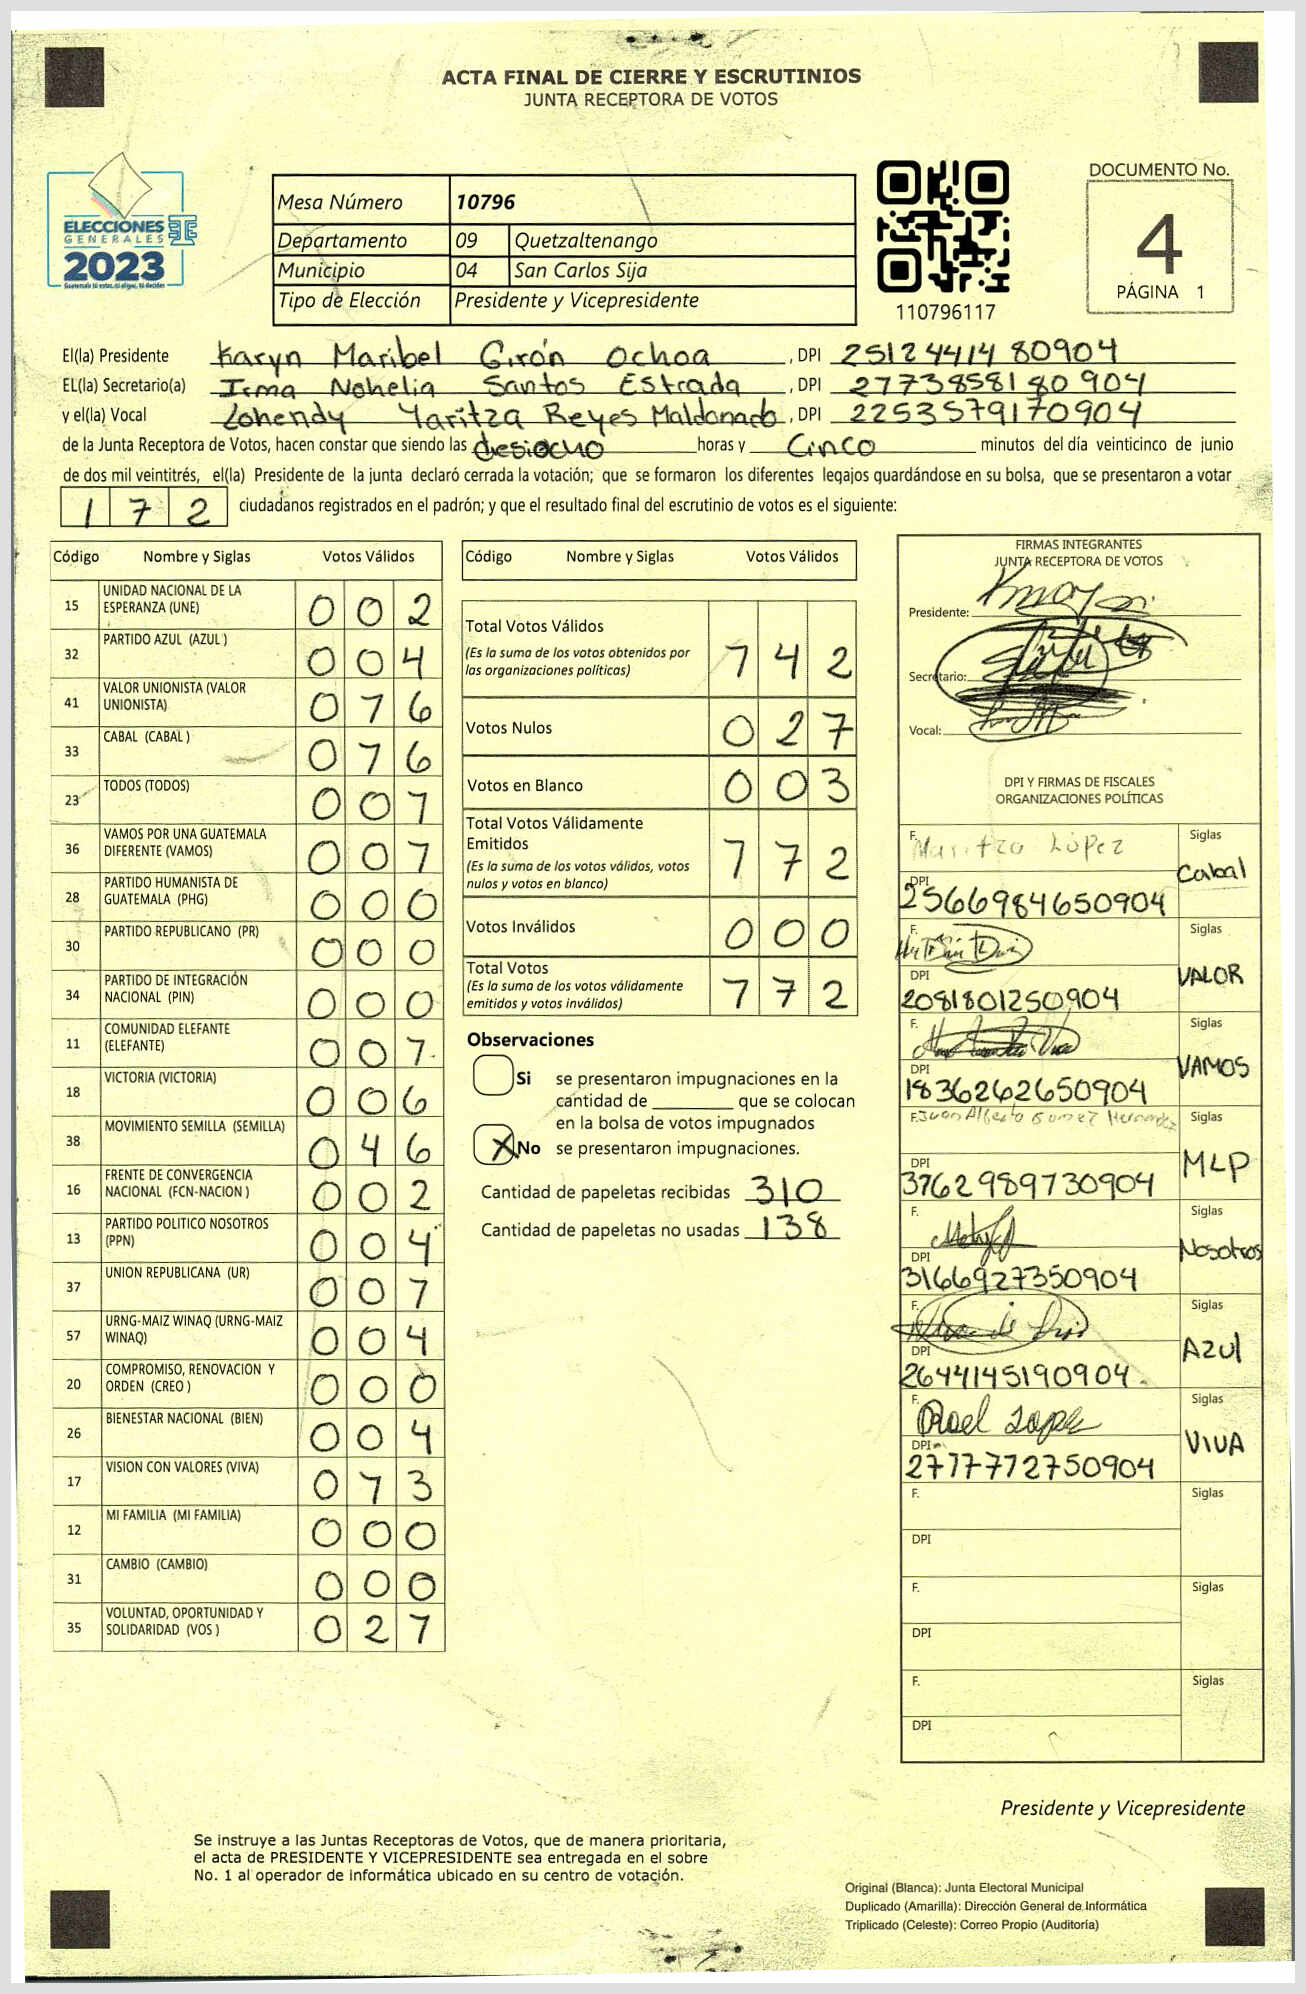 ACTA FINAL DE CIERRE Y ESCRUTINIOS
JUNTA RECEPTORA DE VOTOS
ELECCIONES
GENERALES
2023
Mesa Número 10796
Departamento 09 Quetzaltenango
Municipio 04 San Carlos Sija
Tipo de Elección Presidente y Vicepresidente
110796117
DOCUMENTO No.
4
PÁGINA 1
El(la) Presidente Karyn Maribel Girón Ochoa , DPI 2512441480904
EL(la) Secretario(a) Irma Nohelia Santos Estrada , DPI 2773858180904
y el(la) Vocal Lohendy Yaritza Reyes Maldonado , DPI 2253579170904
de la Junta Receptora de Votos, hacen constar que siendo las desiocho horas y Cinco minutos del día veinticinco de junio
de dos mil veintitrés, el(la) Presidente de la junta declaró cerrada la votación; que se formaron los diferentes legajos guardándose en su bolsa, que se presentaron a votar
172 ciudadanos registrados en el padrón; y que el resultado final del escrutinio de votos es el siguiente:
Código Nombre y Siglas Votos Válidos
15 UNIDAD NACIONAL DE LA
ESPERANZA (UNE) 002
32 PARTIDO AZUL (AZUL ) 004
41 VALOR UNIONISTA (VALOR
UNIONISTA) 076
33 CABAL (CABAL ) 076
23 TODOS (TODOS) 007
36 VAMOS POR UNA GUATEMALA
DIFERENTE (VAMOS) 007
28 PARTIDO HUMANISTA DE
GUATEMALA (PHG) 000
30 PARTIDO REPUBLICANO (PR) 000
34 PARTIDO DE INTEGRACIÓN
NACIONAL (PIN) 000
11 COMUNIDAD ELEFANTE
(ELEFANTE) 007
18 VICTORIA (VICTORIA) 006
38 MOVIMIENTO SEMILLA (SEMILLA) 046
16 FRENTE DE CONVERGENCIA
NACIONAL (FCN-NACION ) 002
13 PARTIDO POLITICO NOSOTROS
(PPN) 004
37 UNION REPUBLICANA (UR) 007
57 URNG-MAIZ WINAQ (URNG-MAIZ
WINAQ) 004
20 COMPROMISO, RENOVACION Y
ORDEN (CREO ) 000
26 BIENESTAR NACIONAL (BIEN) 004
17 VISION CON VALORES (VIVA) 073
12 MI FAMILIA (MI FAMILIA) 000
31 CAMBIO (CAMBIO) 000
35 VOLUNTAD, OPORTUNIDAD Y
SOLIDARIDAD (VOS ) 027
Código Nombre y Siglas Votos Válidos
Total Votos Válidos
(Es la suma de los votos obtenidos por
las organizaciones políticas) 742
Votos Nulos 027
Votos en Blanco 003
Total Votos Válidamente
Emitidos
(Es la suma de los votos válidos, votos
nulos y votos en blanco) 772
Votos Inválidos 000
Total Votos
(Es la suma de los votos válidamente
emitidos y votos inválidos) 772
Observaciones
Si se presentaron impugnaciones en la
cantidad de ________ que se colocan
en la bolsa de votos impugnados
X No se presentaron impugnaciones.
Cantidad de papeletas recibidas 310
Cantidad de papeletas no usadas 138
FIRMAS INTEGRANTES
JUNTA RECEPTORA DE VOTOS
Presidente:
Secretario:
Vocal:
DPI Y FIRMAS DE FISCALES
ORGANIZACIONES POLÍTICAS
F. Maritza López Siglas
DPI 2566984650904 Cabal
F. Siglas
DPI 2081801250904 VALOR
F. Siglas
DPI 1836262650904 VAMOS
F. Juan Alberto Gomez Hernandez Siglas
DPI 3762989730904 MLP
F. Siglas
DPI 3166927350904 Nosotros
F. Siglas
DPI 2644145190904 Azul
F. Siglas
DPI 2777772750904 VIVA
F. Siglas
DPI
F. Siglas
DPI
F. Siglas
DPI
Presidente y Vicepresidente
Se instruye a las Juntas Receptoras de Votos, que de manera prioritaria,
el acta de PRESIDENTE Y VICEPRESIDENTE sea entregada en el sobre
No. 1 al operador de informática ubicado en su centro de votación.
Original (Blanca): Junta Electoral Municipal
Duplicado (Amarilla): Dirección General de Informática
Triplicado (Celeste): Correo Propio (Auditoría)